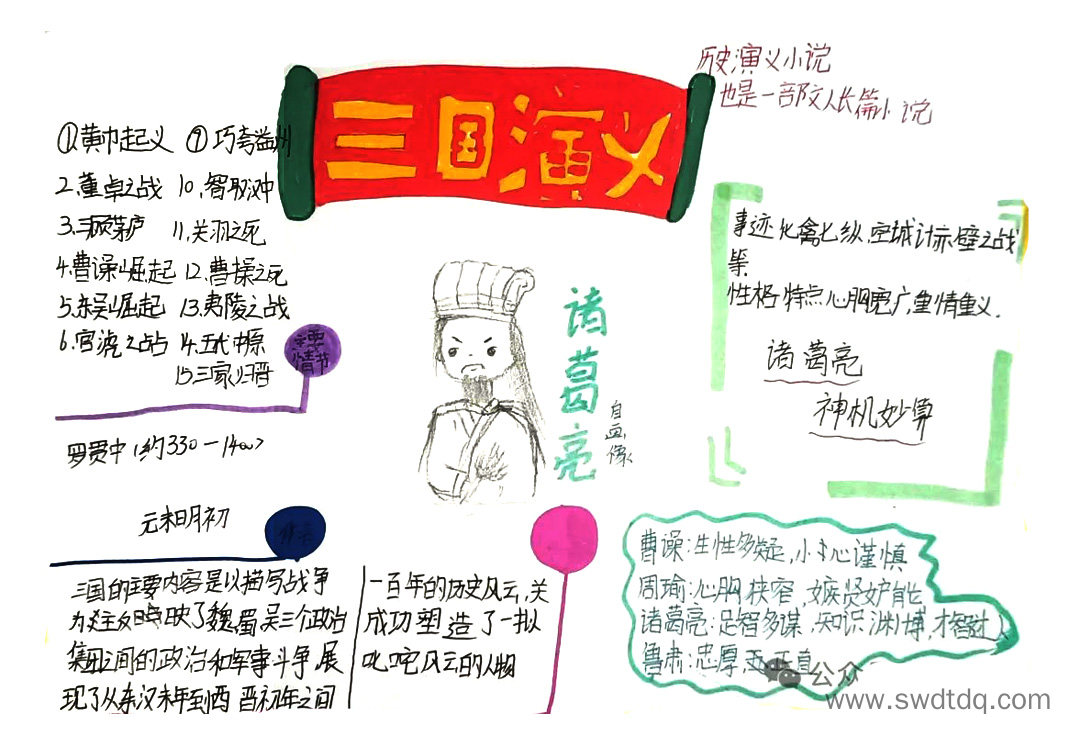 三国演义
历史演义小说
也是一部文人长篇小说
①黄巾起义
2.董卓之战
3.三顾茅庐
4.曹操崛起
5.东吴崛起
6.官渡之战
⑨巧夺益州
10.智取汉中
11.关羽之死
12.曹操之死
13.夷陵之战
14.五伐中原
15三家归晋
主要
情节
罗贯中(约330-1400)
元末明初
诸葛亮
自画像
事迹:七禽七纵,空城计,赤壁之战
等
性格特点心胸宽广,重情重义.
诸葛亮
神机妙算
三国的主要内容是以描写战争
为主反映了魏、蜀、吴三个政治
集团之间的政治和军事斗争,展
现了从东汉末年到西晋初年之间
一百年的历史风云,关
成功塑造了一批
叱咤风云的人物
曹操:生性多疑,小心谨慎
周瑜:心胸狭容,嫉贤妒能
诸葛亮:足智多谋,知识渊博,才智过人
鲁肃:忠厚,正直
公众
www.swdtdq.com